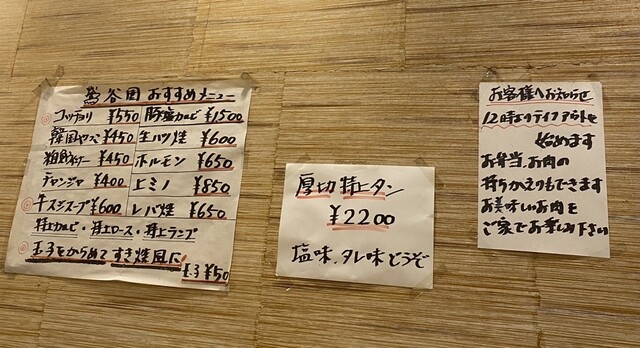 鶯谷園おすすめメニュー
◎コプチョリ ¥550 豚塩カルビ ¥1500
韓国やっこ ¥450 生ハツ焼 ¥600
¥450 ホルモン ¥650
チャンジャ ¥400 上ミノ ¥850
◎牛スジスープ ¥600 レバ焼 ¥650
特上カルビ・特上ロース・特上ランプ
◎玉子をからめて すき焼風に!
玉子 ¥50
厚切特上タン
¥2200
塩味、タレ味どうぞ
お客様へお知らせ
12時よりテイクアウトを
始めます
お弁当、お肉の
持ちかえりもできます
お美味しいお肉を
ご家でお楽しみ下さい